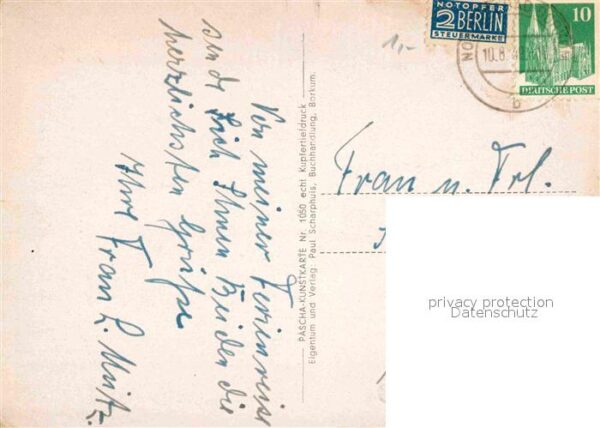 NOTOPFER
2 BERLIN
STEUERMARKE
10
DEUTSCHE POST
10.8.
b
1,-
Von meiner Ferienreise
sende ich Ihnen Beiden die
herzlichsten Grüße
Ihre Frau L.
PASCHA-KUNSTKARTE Nr. 1050 echt Kupfertiefdruck
Eigentum und Verlag: Paul Scharphuis, Buchhandlung, Borkum.
Frau u. Frl.
privacy protection
Datenschutz